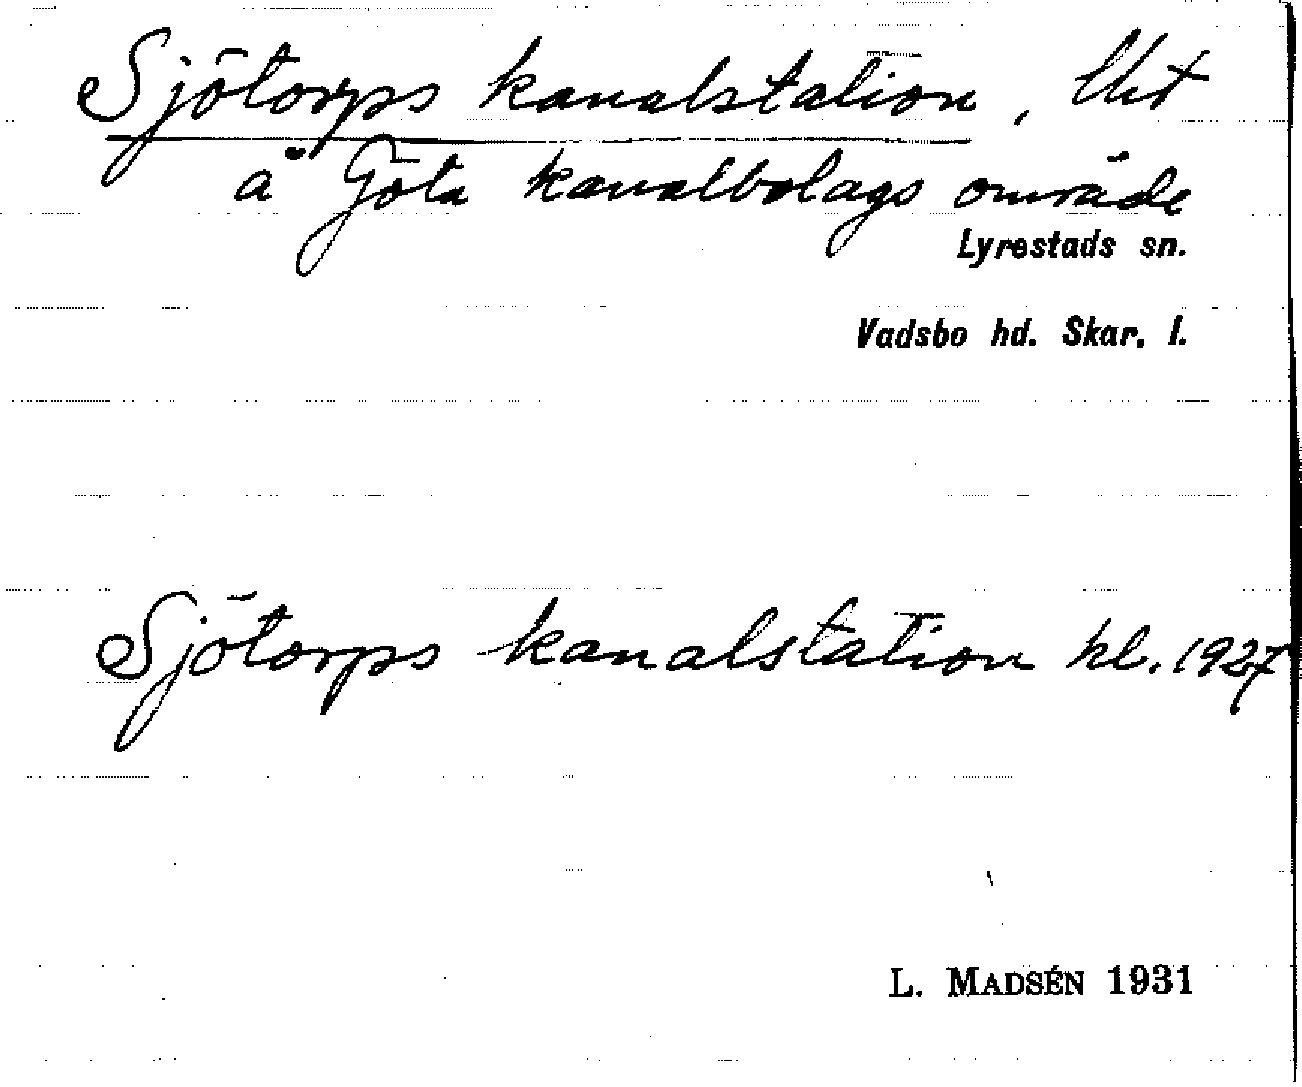 Sjötorps kanalstation, lht
å Göta kanalbolags område
Lyrestads sn.
Vadsbo hd. Skar. l.
Sjötorps kanalstation hl. 1927
L. MADSÉN 1931